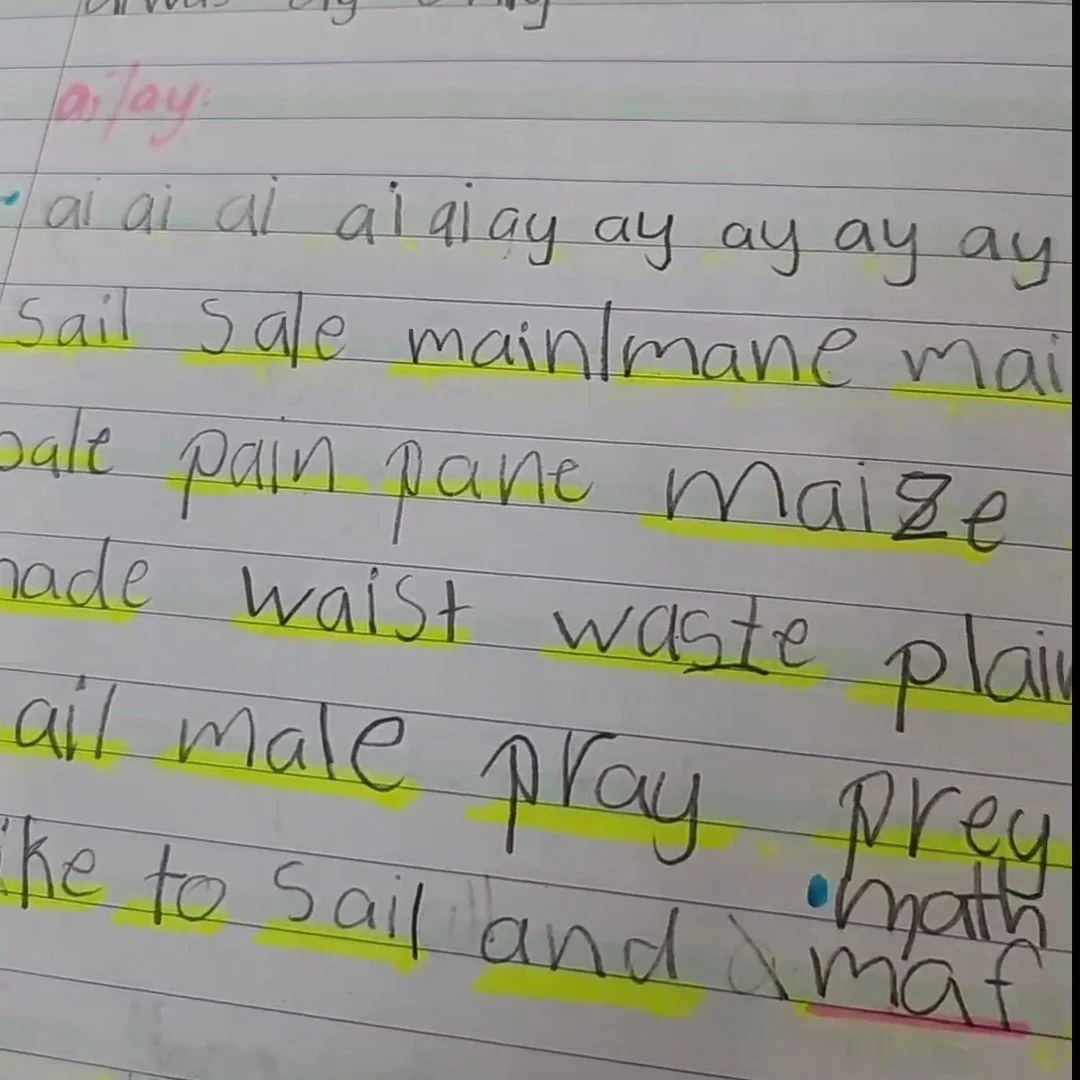 ai/ay:
ai ai ai ai ai ay ay ay ay ay
sail sale main/mane mai
pale pain pane maize
made waist waste plain
ail male pray prey
ike to sail and math
maf